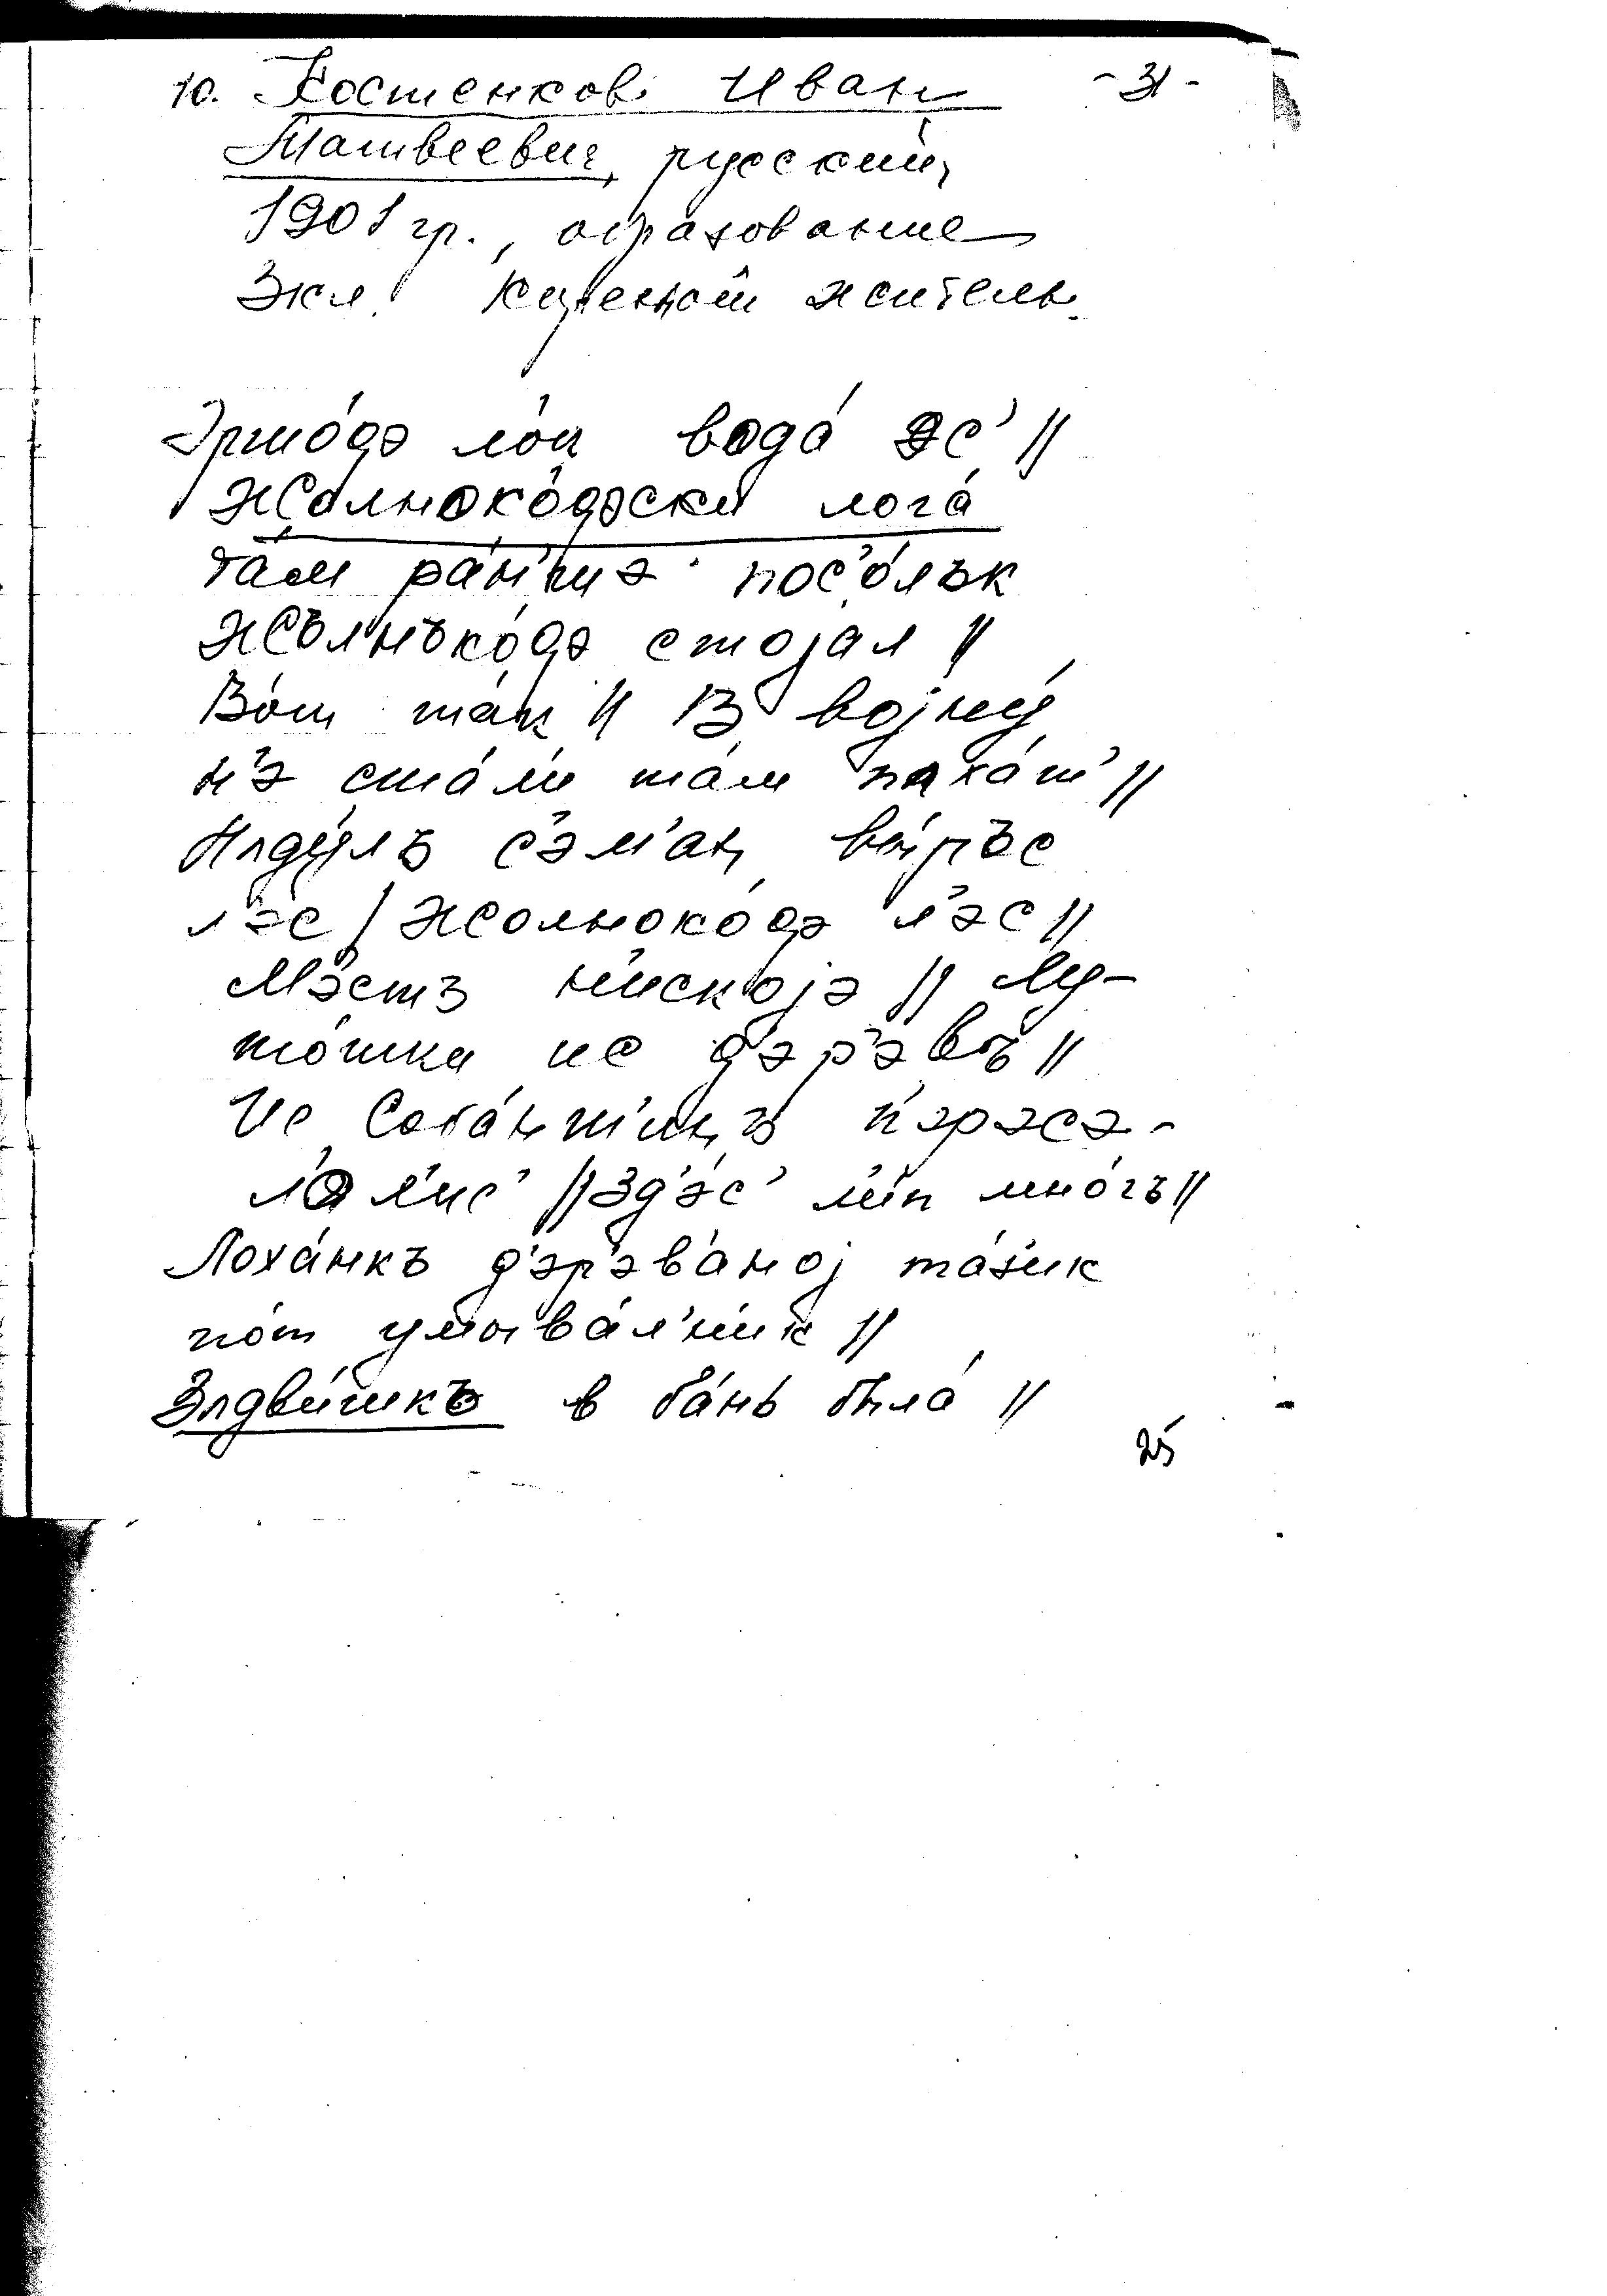 10. Костенков Иван - 31 -
Матвеевич, русский,
1901 гр., образование
3 кл. Коренной житель.
вода́ эс' //
Жолноко́дэски лога́
та́м ра́н'шэ пос'о́лък
Жълнъко́дэ стоја́л //
Во́т та́к // В војну́
н'э ста́л'и та́м паха́т' //
Нлду́лъ с'эм'ан, вы́ръс
л'эс / Жолноко́дэ л'эс //
М'э́стъ н'и́скојэ // Лу-
то́шка ис д'э́р'эвъ //
Ис п'эрэсэ-
л'а́л'ис' // Зд'э́с' л'и́п мно́гъ //
Лоха́нкъ д'эр'эв'а́ној та́з'ик
по́т умыва́л'н'ик //
Злдви́шкъ в ба́нь была́ //
25